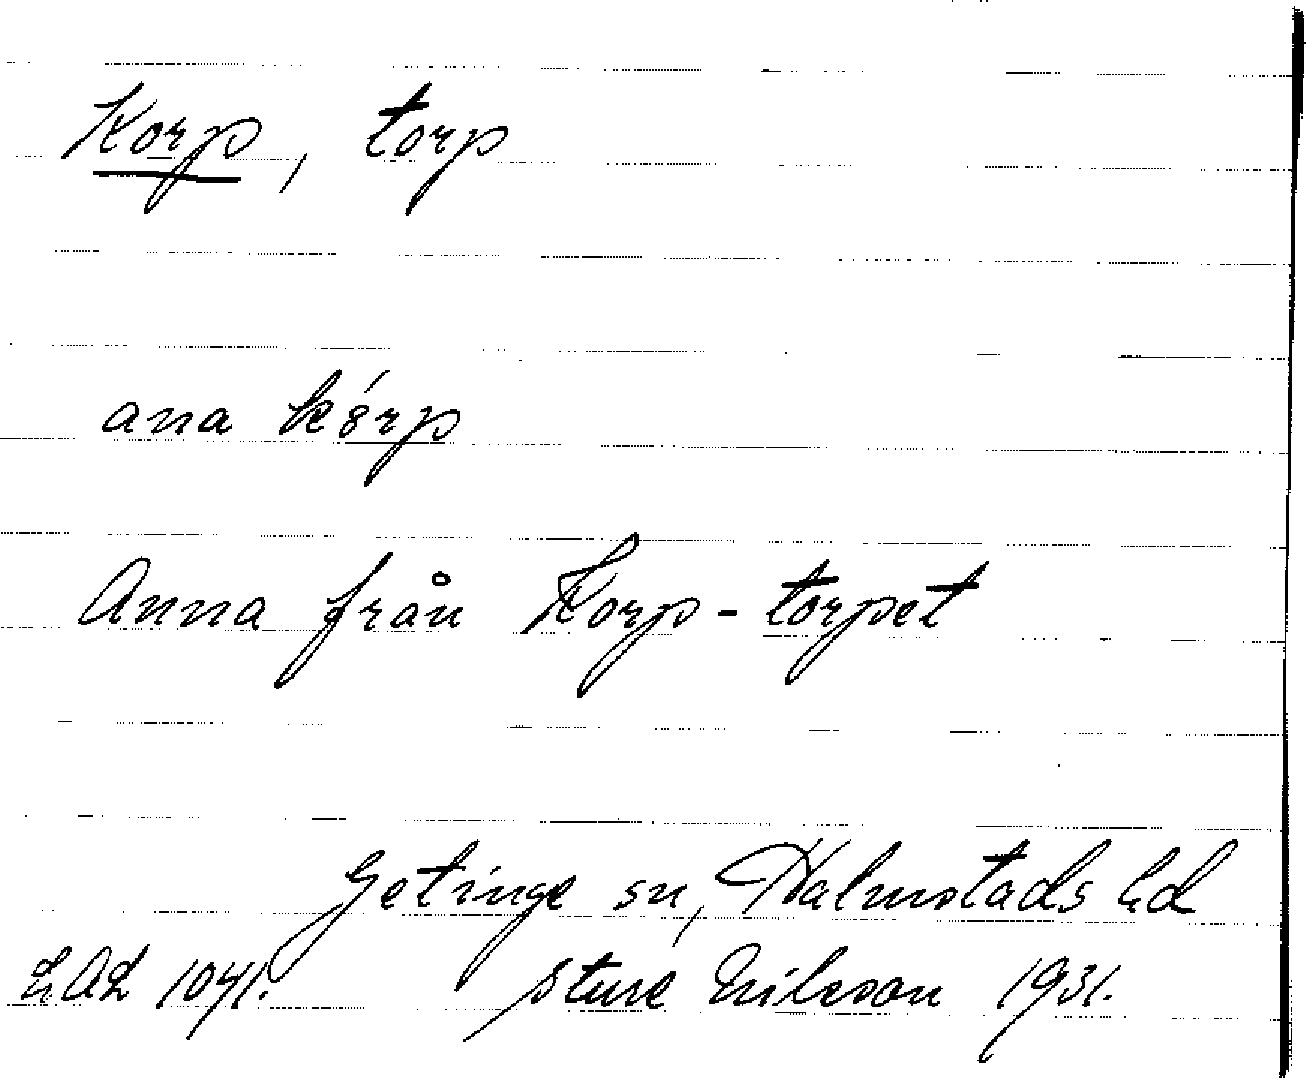 Korp, torp
ana kórp
Anna från Korp-torpet
Getinge sn, Halmstads hd
LAL 1041. Sture Nilsson 1931.